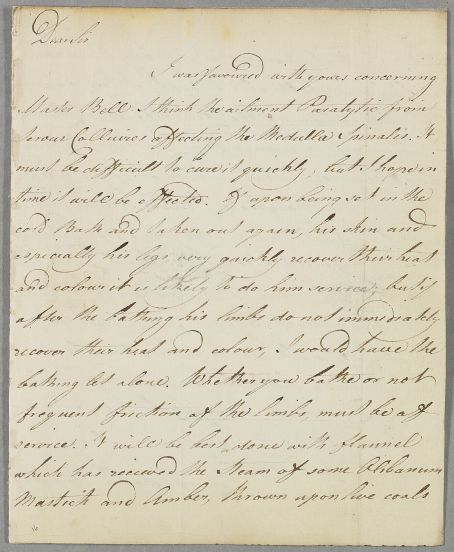 Dear Sir
I was favoured with yours concerning
Master Bell I think he ailment Paralytic from
serous Colluvies affecting the Medulla Spinalis. It
must be difficult to cure it quickly, but I hope in
time it will be effected. If upon being set in the
cold Bath and taken out again, his skin and
especially his legs very quickly recover their heat
and colour it is likely to do him service, but if
after the bathing his limbs do not immediately
recover their heat and colour, I would have the
bathing let alone. Whether you bathe or not
frequent friction of the limbs, must be of
service. It will be best done with flannel
which has received the steam of some Olibanum
Mastich and Amber, thrown upon live coals